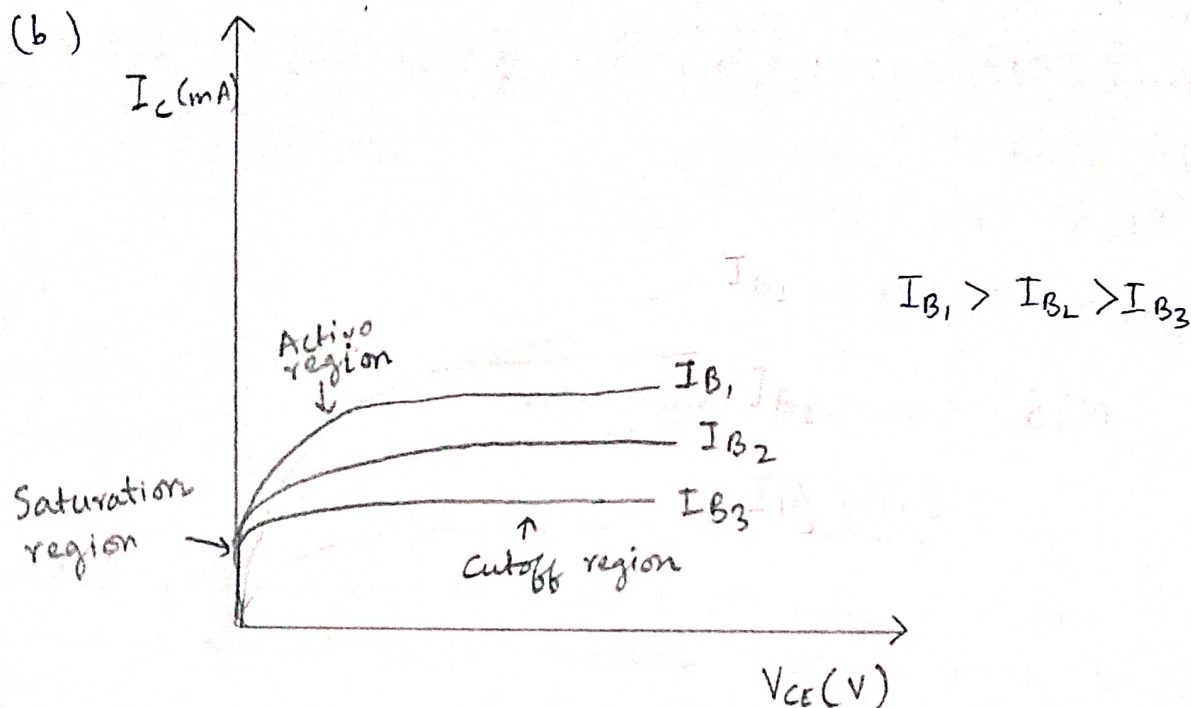 (b)
I_C (mA)
I_B₁ > I_B₂ > I_B₃
Active
region
I_B₁
I_B₂
Saturation
region
I_B₃
Cutoff region
V_CE (V)